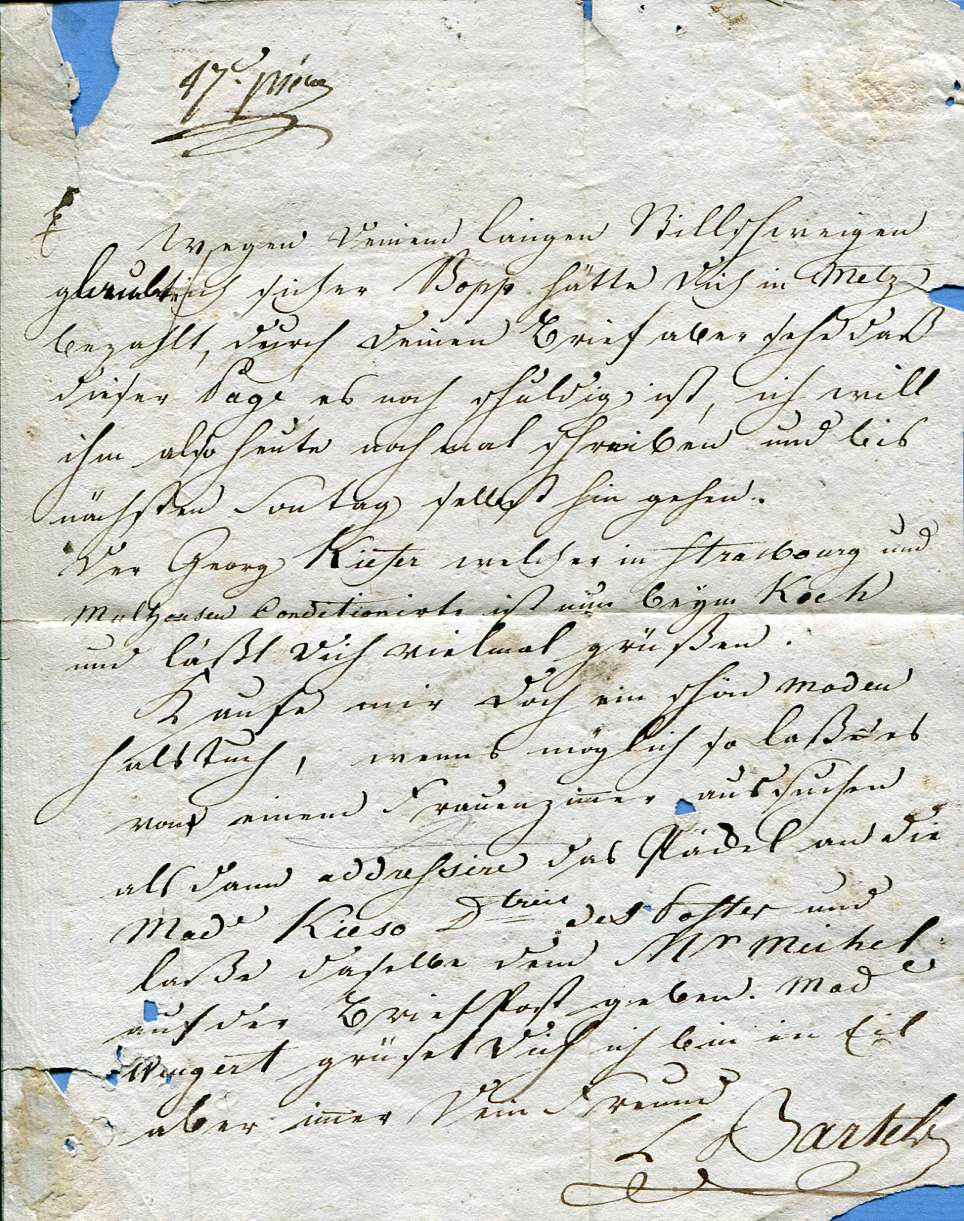 Wegen Deinem langen Stillschweigen
glaubte ich sicher Bopp hätte Dich in Metz
bezahlt, durch Deinen Brief aber sehe daß
dieser Page es noch schuldig ist, ich will
ihm also heute noch mal schreiben und bis
nächsten Sontag selbst hin gehen.
Der Georg Kiefer welcher in Strasbourg und
Mulhausen Conditionirte ist nun beym Koch
und läßt Dich vielmal grüßen.
Kaufe mir doch ein schön Moden
halstuch, wenns möglich so laße es
von einem Frauenzimmer aussuchen
als dann addressire das Päckel an die
Made Kieso Dtrice des Postes und
laße daselbe dem Mr Michel
auf der Brief Post geben. Made
Wingert grüset Dich ich bin in Eil
aber immer Dein Freund
L Bartels